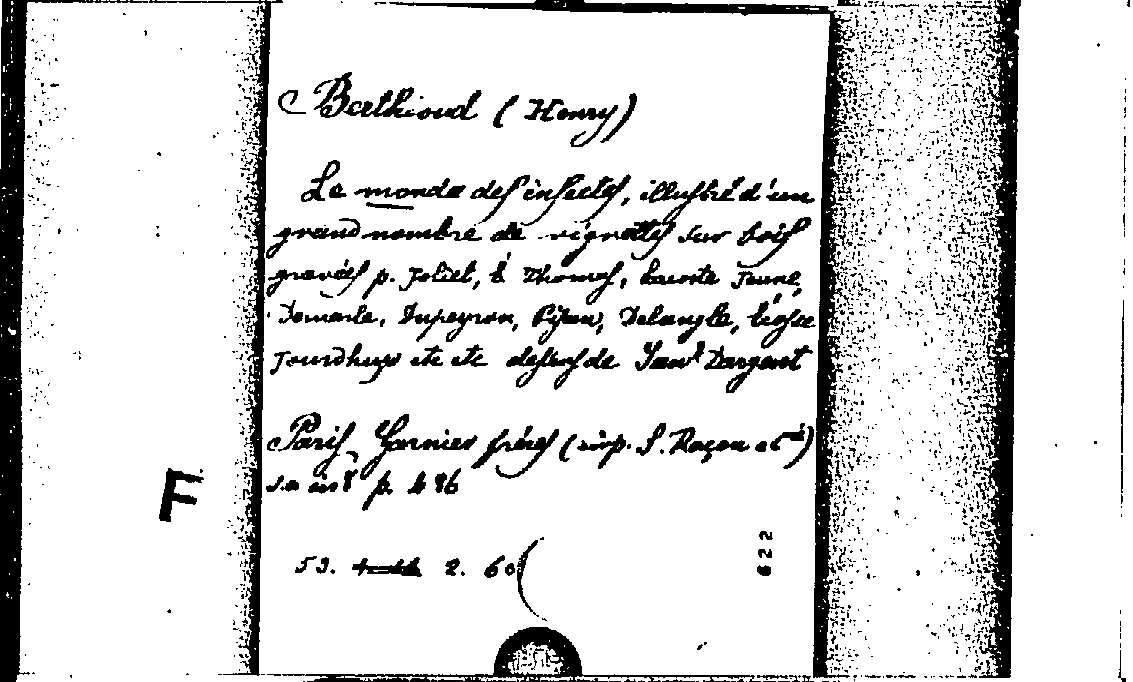 Berthoud (Henry)
Le monde des insectes, illustré d'un
grand nombre de vignettes sur bois
gravées p. Joliet, Thomas, Jeune,
Dupeyron, Pijon, Delangle,
etc etc dessins de Yan' Dargent
Paris, Garnier frères (imp. S. Raçon et Cie)
s.a in 8° p. 486
F
53. 2. 60
622